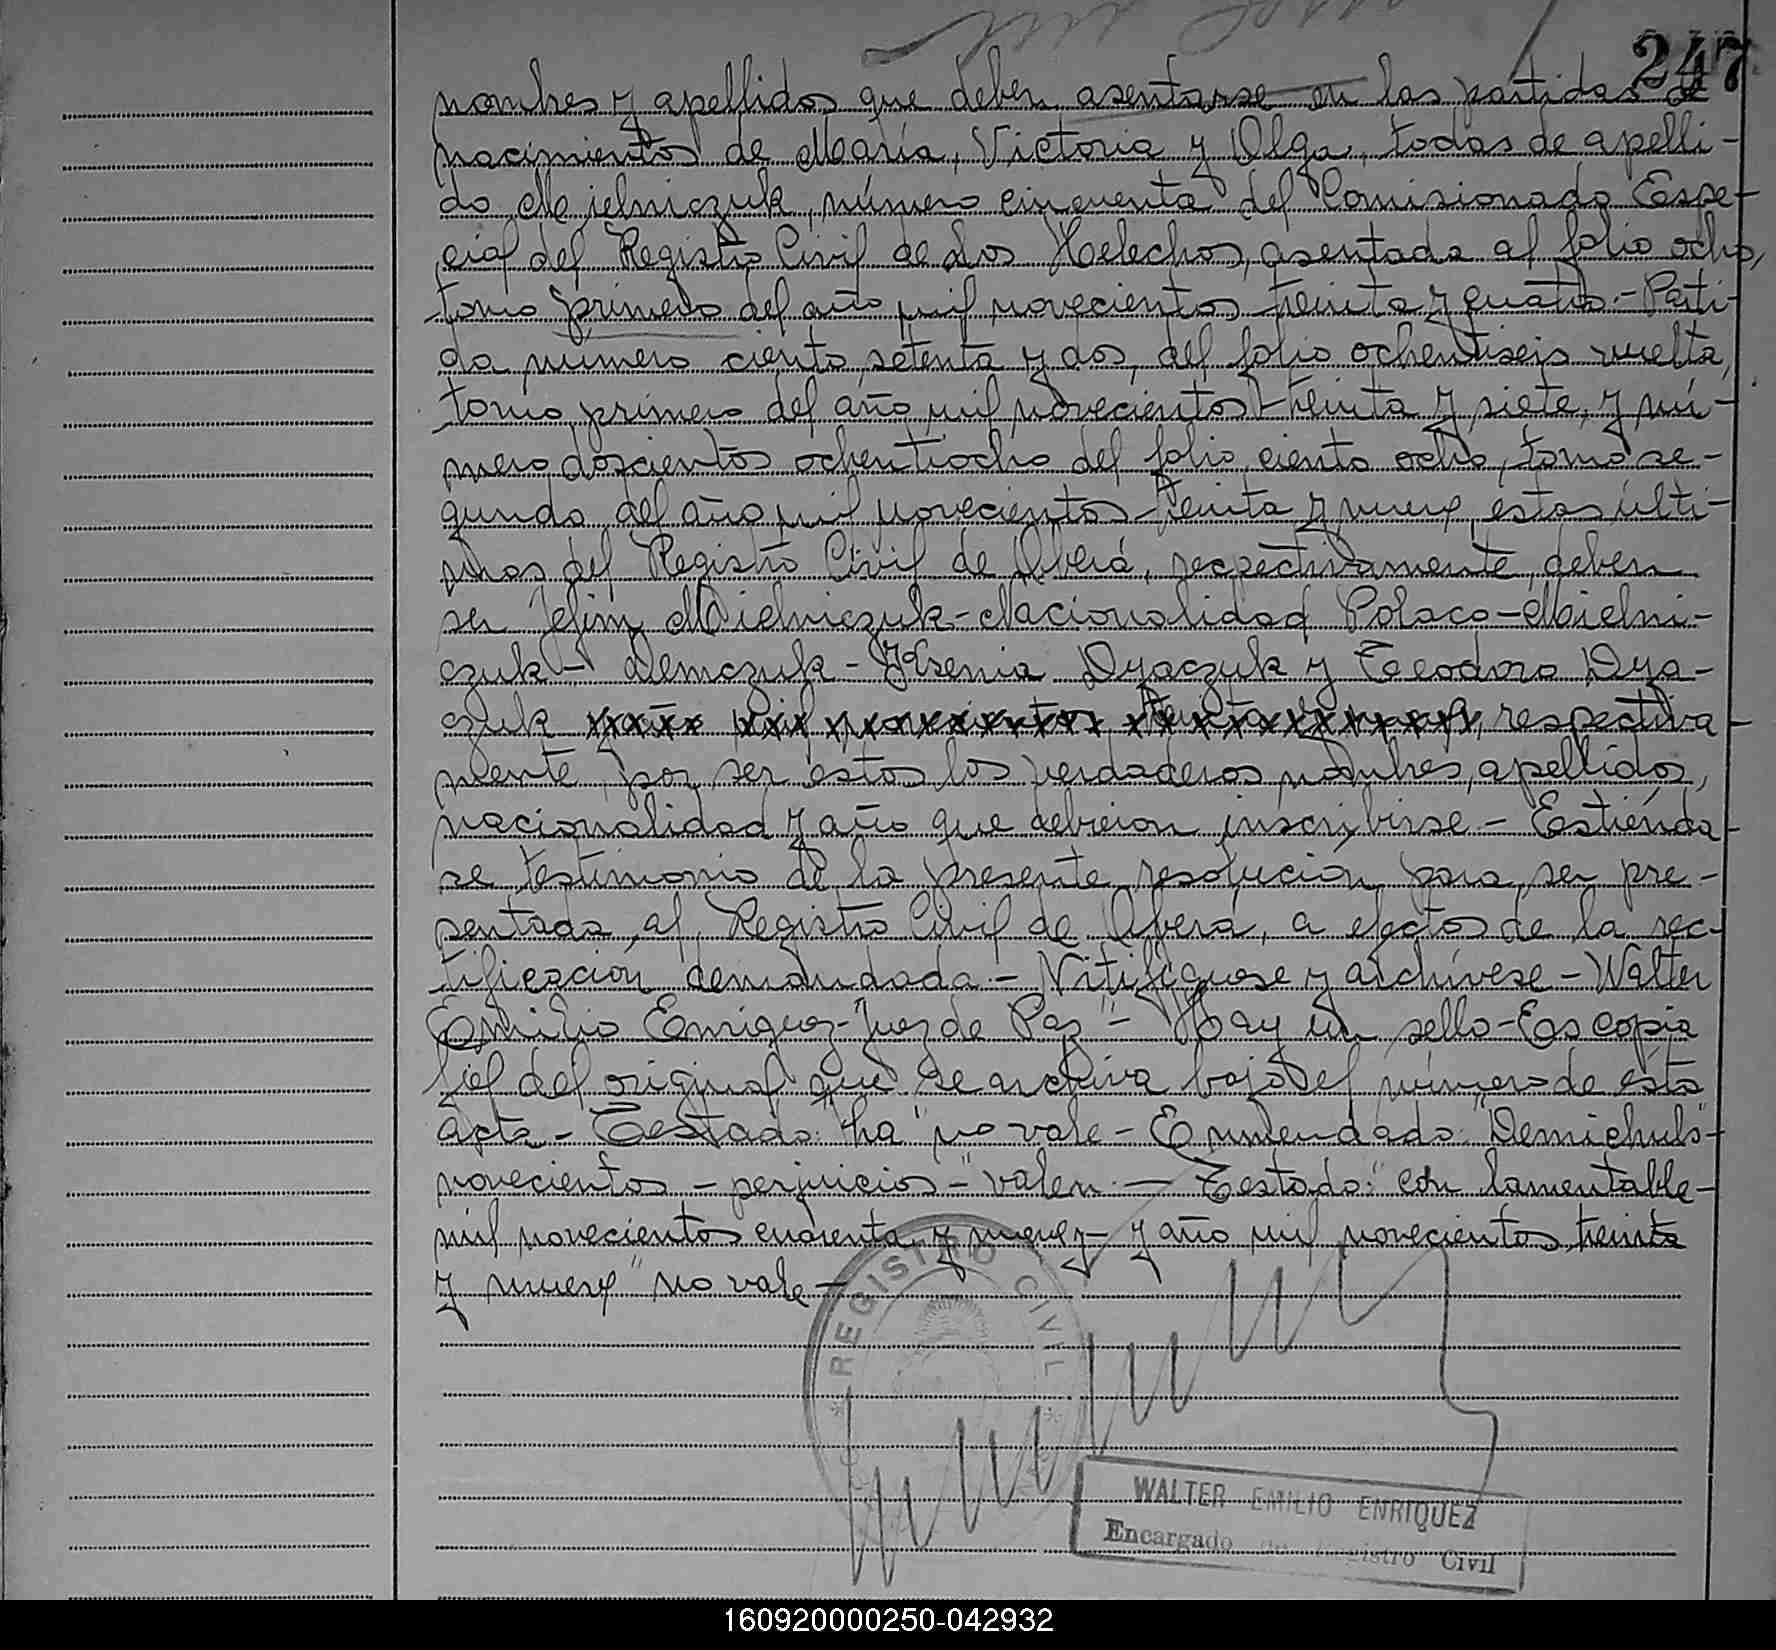 247
nombres y apellidos que deben asentarse en las partidas de
nacimientos de María, Victoria y Olga, todas de apelli-
do Mielniczuk, número cincuenta del Comisionado Espe-
cial del Registro Civil de Los Helechos, asentada al folio ocho,
tomo primero del año mil novecientos treinta y cuatro.- Parti-
da numero ciento setenta y dos, del folio ochentiseis vuelta,
tomo primero del año mil novecientos treinta y siete, y nú-
mero doscientos ochentiocho del folio ciento ocho, tomo se-
gundo del año mil novecientos treinta y nueve, estas últi-
mas del Registro Civil de Oberá, respectivamente, deben
ser Jefim Mielniczuk-Nacionalidad Polaco-Mielni-
czuk- Demczuk- Ksenia Dyaczuk y Teodoro Dya-
czuk y año mil novecientos treinta y nueve, respectiva-
mente, por ser estos los verdaderos nombres, apellidos,
nacionalidad y año que debieron inscribirse.- Estiénda-
se testimonio de la presente resolución para ser pre-
sentada al Registro Civil de Oberá, a efectos de la rec-
tificación demandada.- Nitifíquese y archívese - Walter
Emilio Enriquez-Juez de Paz"- Hay un sello-Es copia
fiel del original que se archiva bajo el número de esta
acta- Testado: "ha" no vale- Enmendado: "Demichuls"-
novecientos - perjuicios -" valen.- Testado:" con lamentable-
mil novecientos cuarenta y nueve- y año mil novecientos treinta
y nueve" no vale-
REGISTRO CIVIL
WALTER EMILIO ENRIQUEZ
Encargado del Registro Civil
160920000250-042932